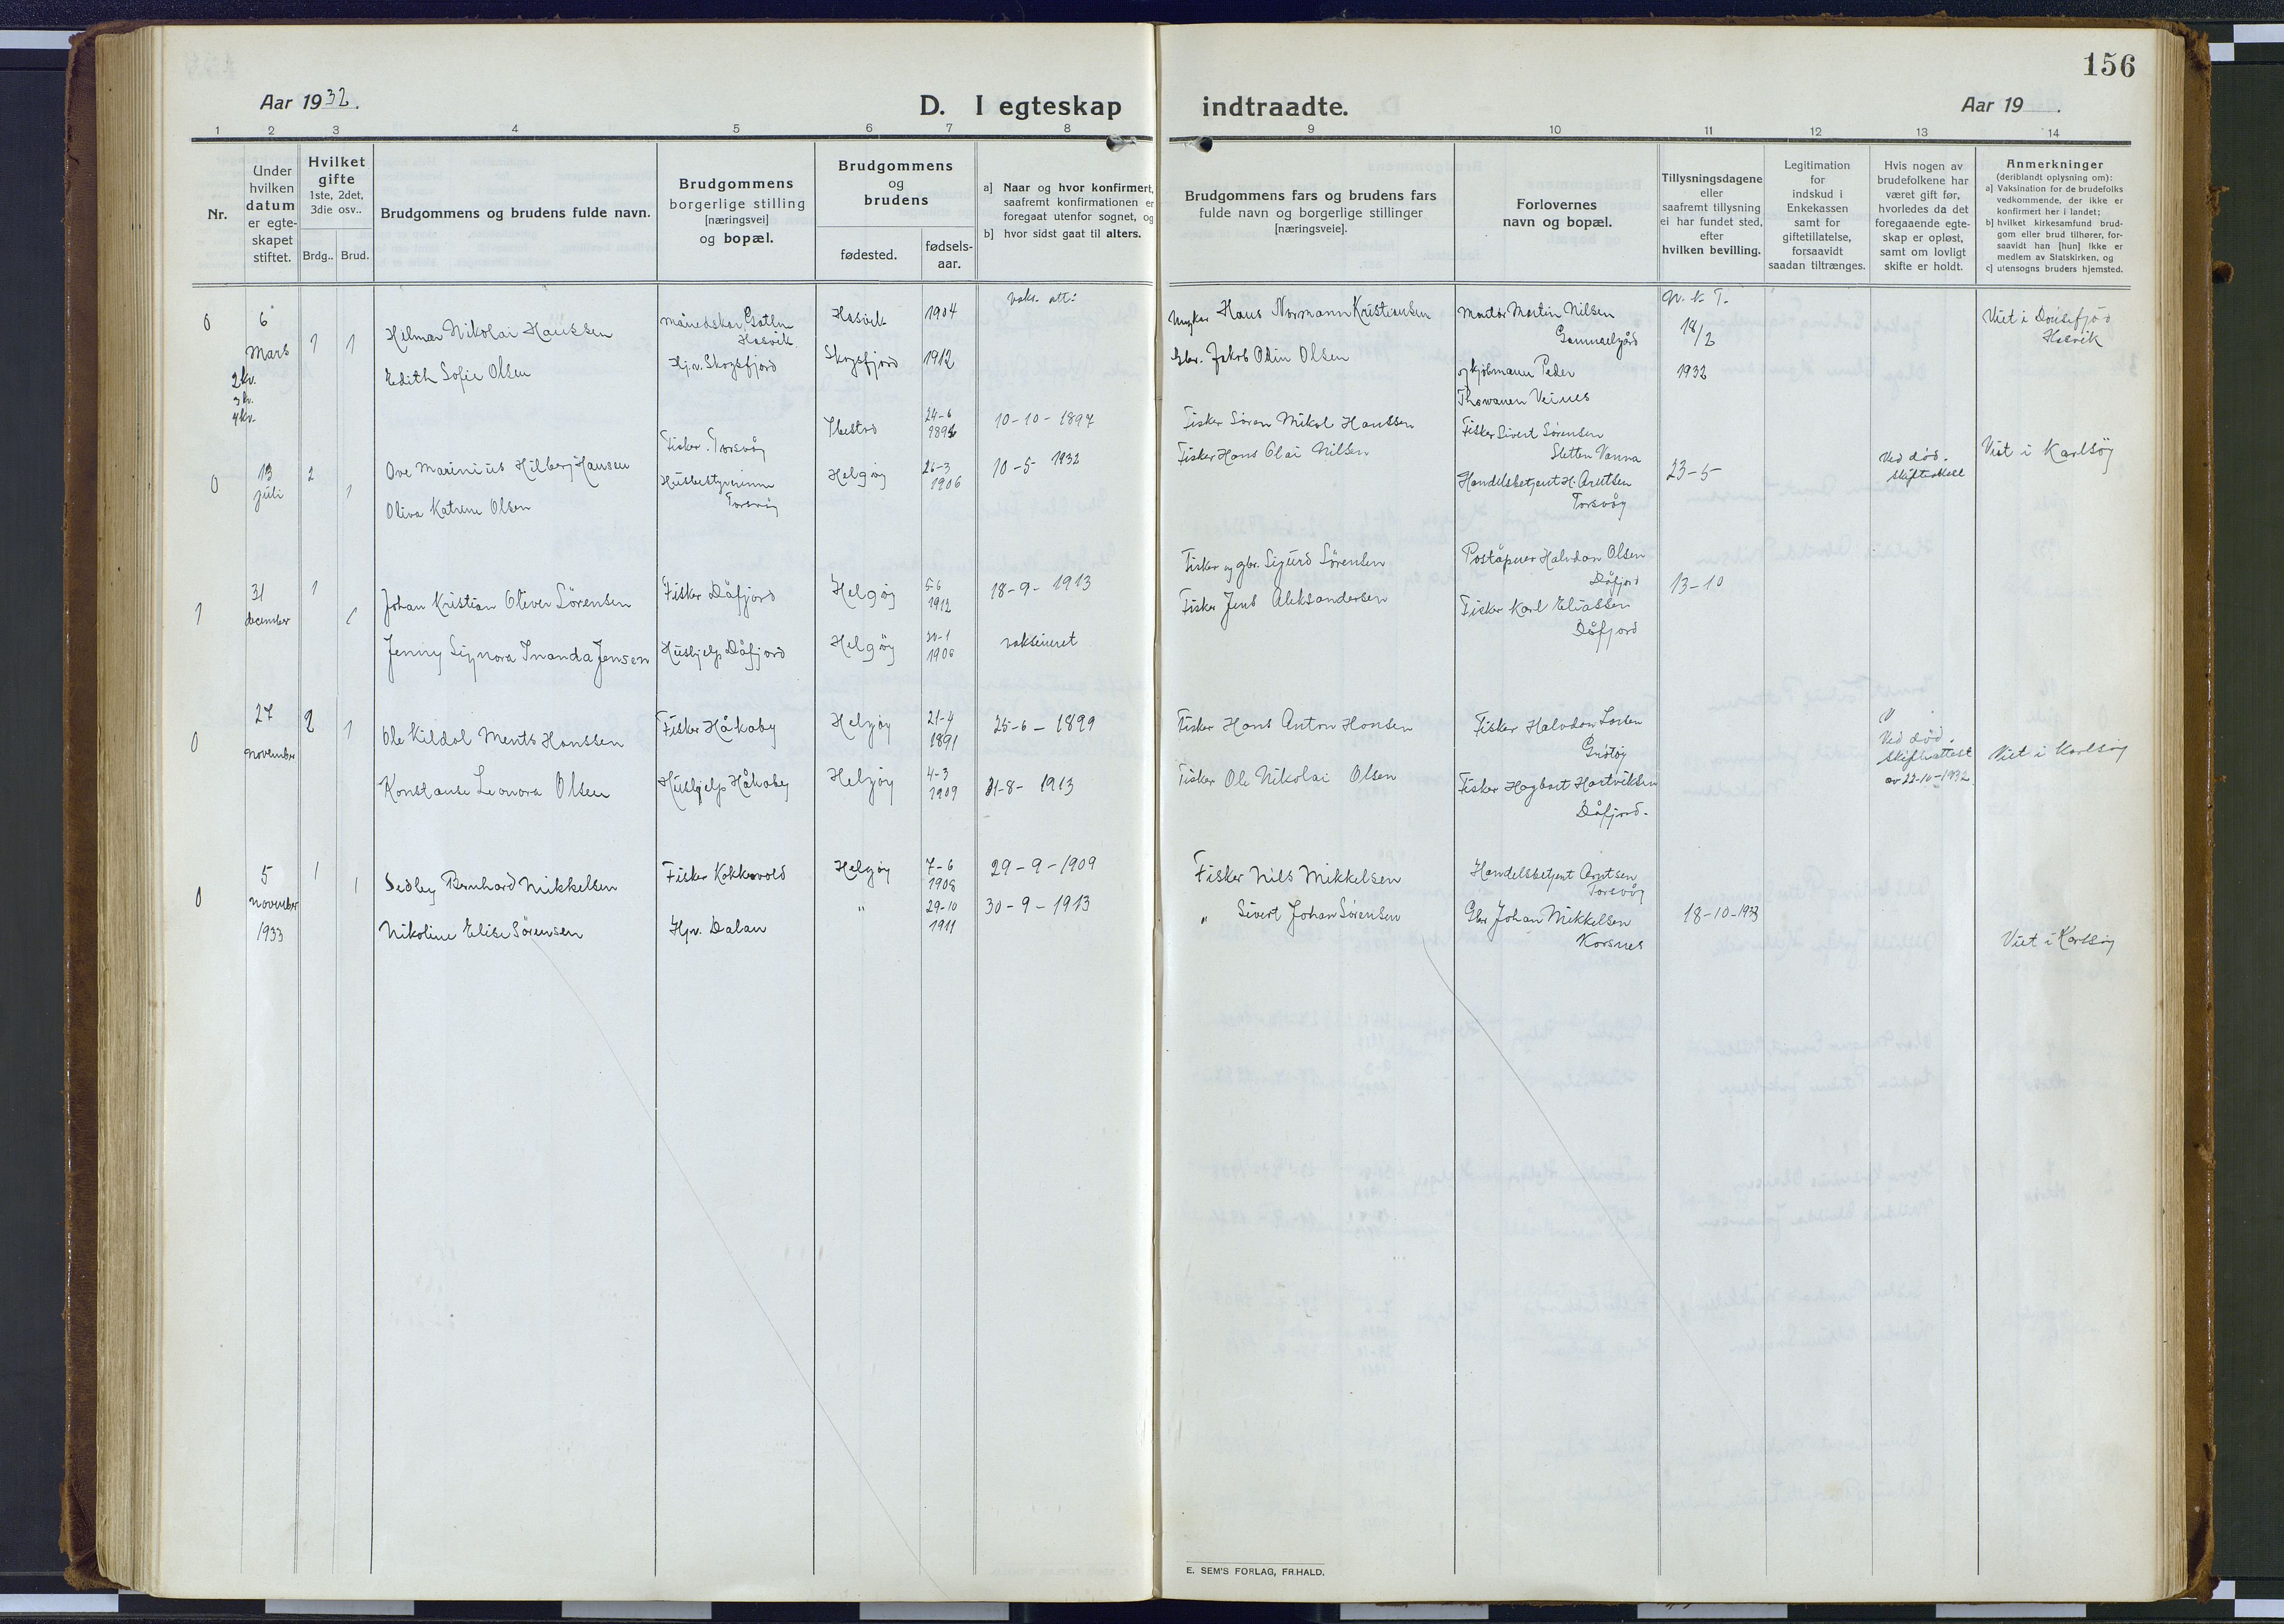 156
Aar 1932.
D. I egteskap indtraadte.
Aar 19 .
1 2 3 4 5 6 7 8 9 10 11 12 13 14
Nr.
Under
hvilken
datum
er egte-
skapet
stiftet.
Hvilket
gifte
1ste, 2det,
3die osv..
Brdg.. Brud.
Brudgommens og brudens fulde navn.
Brudgommens
borgerlige stilling
[næringsvei]
og bopæl.
Brudgommens
og
brudens
fødested.
fødsels-
aar.
a] Naar og hvor konfirmert,
saafremt konfirmationen er
foregaat utenfor sognet, og
b] hvor sidst gaat til alters.
Brudgommens fars og brudens fars
fulde navn og borgerlige stillinger
[næringsveie].
Forlovernes
navn og bopæl.
Tillysningsdagene
eller
saafremt tillysning
ei har fundet sted,
efter
hvilken bevilling.
Legitimation
for
indskud i
Enkekassen
samt for
giftetillatelse,
forsaavidt
saadan tiltrænges.
Hvis nogen av
brudefolkene har
været gift før,
hvorledes da det
foregaaende egte-
skap er opløst,
samt om lovligt
skifte er holdt.
Anmerkninger
(deriblandt oplysning om):
a] Vaksination for de brudefolks
vedkommende, der ikke er
konfirmert her i landet;
b] hvilket kirkesamfund brud-
gom eller brud tilhører, for-
saavidt han [hun] ikke er
medlem av Statskirken, og
c] utensogns bruders hjemsted.
0
6
Mars
2kv.
3kv.
4kv.
1 1
Hilmar Nikolai Hanssen
Edith Sofie Olsen
Hasvik
Hj.v. Skogsfjord
Hasvik 1904
Skogsfjord 1912
vaks. att:
Hans Normann Kristiansen
Gbr. Jakob Odin Olsen
Martin Nilsen
Gammelgård
og kjøbmann Peder
Veines
18/2
1932
Viet i
Hasvik
0
13
juli
2 1
Ove Marinius Hilberg Hansen
Oliva Katrine Olsen
Fisker. Torsvåg
Husbestyrerinne
Torsvåg
Ibestad
24-6
Helgøy
26-3
1906
10-10-1897
10-5 1932
Fisker Søren Mikal Hanssen
Fisker Hans Olai Nilsen
Fisker Sivert Sørensen
Sletten Vanna
Handelsbetjent H. Arntsen
Torsvåg
23-5
Ved død.
Viet i Karlsøy
1
31
december
1 1
Johan Kristian Oliver Sörensen
Jenny Signora Inanda Jensen
Fisker Dåfjord
Hushjelp Dåfjord
Helgøy
5-6
1912
Helgøy
1908
18-9-1913
vaksineret
Fisker og gbr. Sigurd Sörensen
Fisker Jens Aleksandersen
Poståpner Halvdan Olsen
Dåfjord
Fisker Karl Eliassen
Dåfjord
13-10
0
27
november
2 1
Ole Kildal Ments Hanssen
Konstanse Leonora Olsen
Fisker Håkøby
Hushjelp Håkøby
Helgøy
21-4
1891
Helgøy
4-3
1909
25-6-1899
31-8-1913
Fisker Hans Anton Hansen
Fisker Ole Nikolai Olsen
Fisker Halvdan Larsen
Grøtøy
Fisker Hagbart Hartviksen
Dåfjord.
Ved død.
Skifteattest
av 22-10-1932
Viet i Karlsøy
0
5
november
1933
1 1
Sedley Bernhard Mikkelsen
Nikoline Elise Sörensen
Fisker Kokkvold
Hjv. Dalan
Helgøy
7-6
1908
"
29-10
1911
29-9-1909
30-9-1913
Fisker Nils Mikkelsen
" Sivert Johan Sörensen
Handelsbetjent Arntsen
Torsvåg
Gbr Johan Mikkelsen
Korsnes
18-10-1933
Viet i Karlsøy
E. SEM'S FORLAG, FR.HALD.